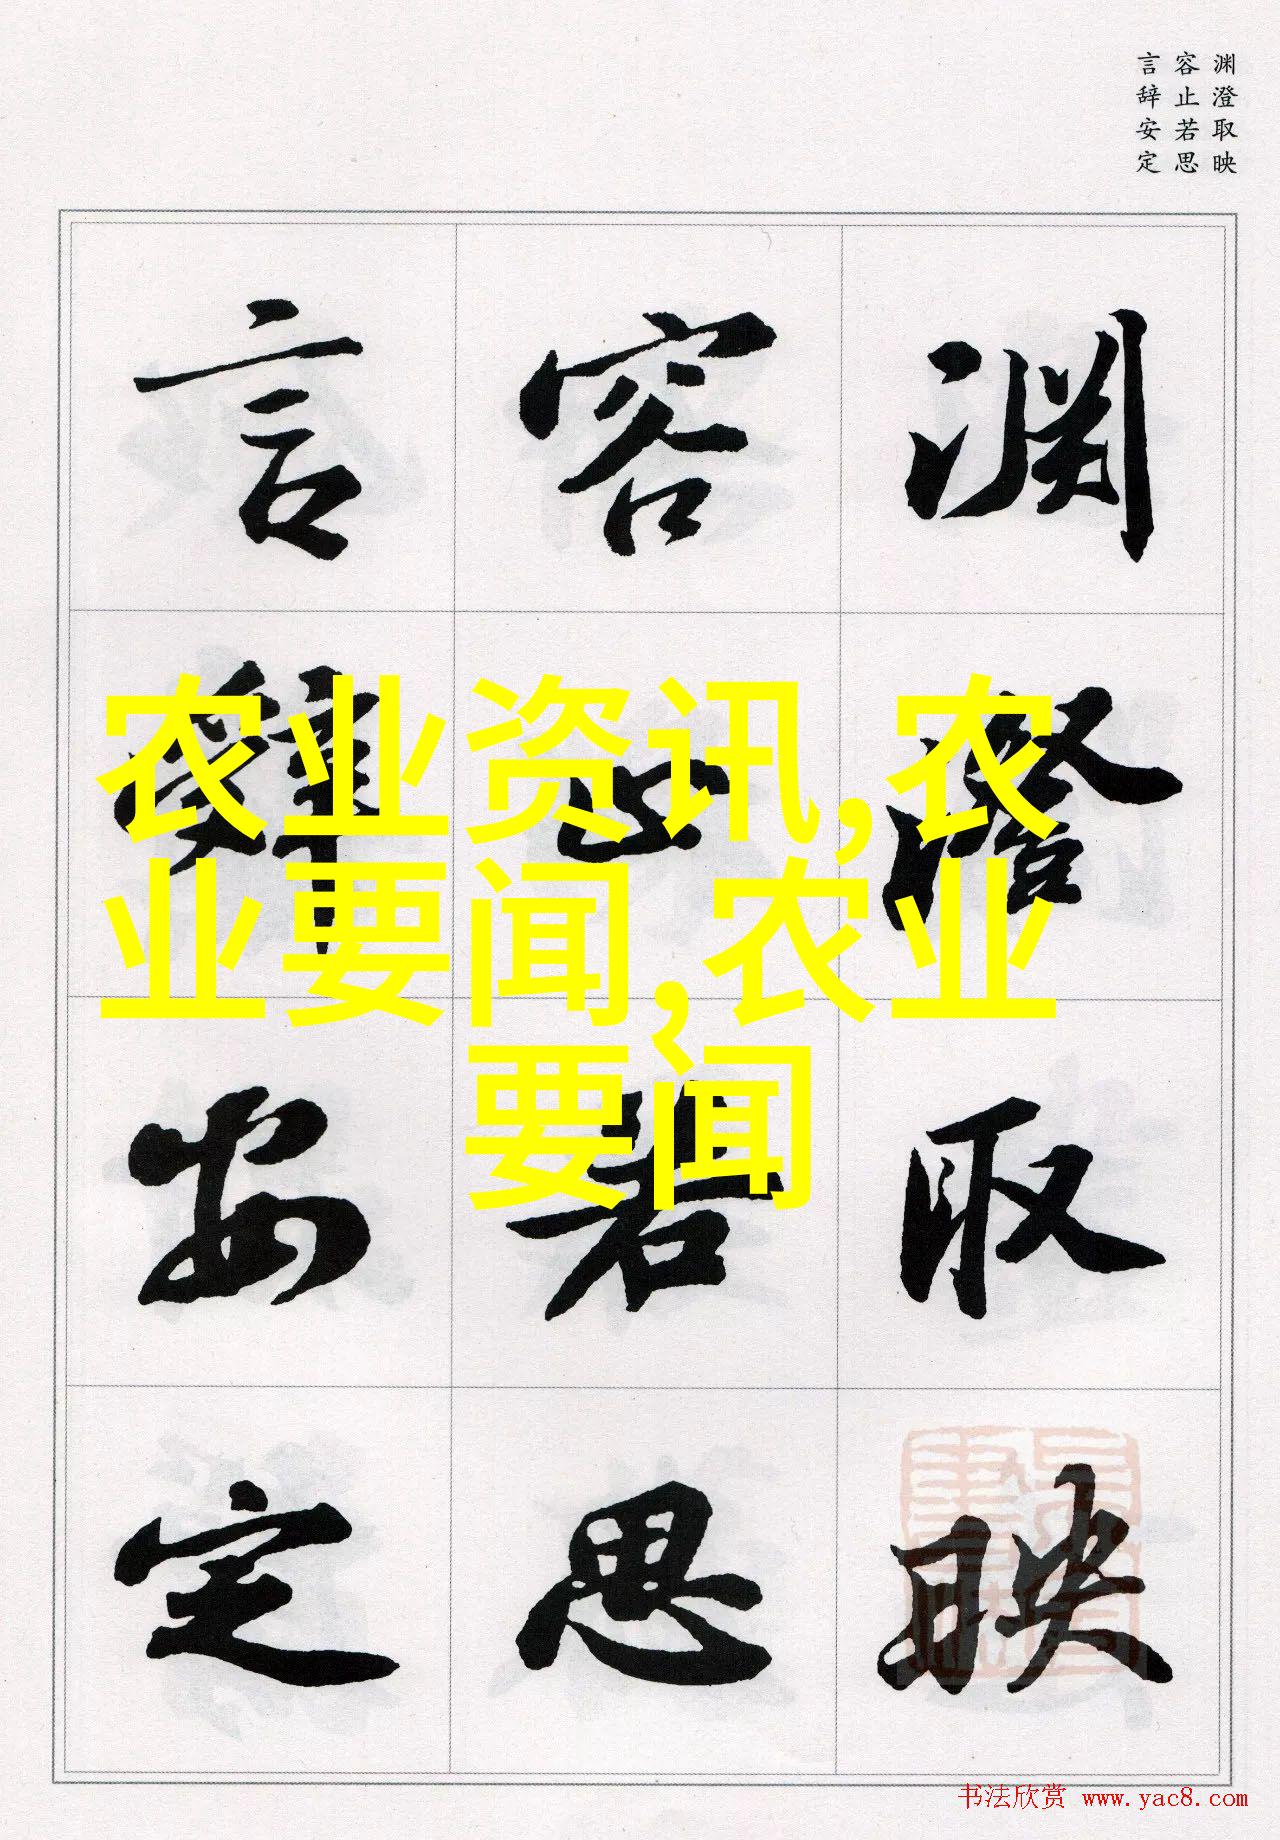 渊澄取映
容止若思
言辞安定
渊澄取映
容止若思
言辞安定
农业资讯,农
业要闻,农业
要闻
书法欣赏 www.yac8.com